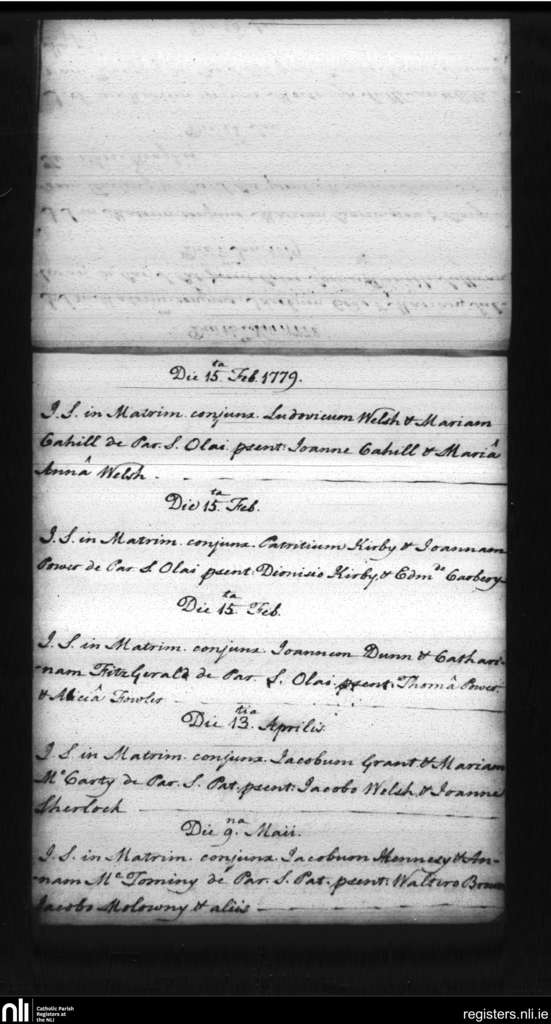 Die 15.ta Feb. 1779.
I. S. in Matrim. conjunx. Ludovicum Welsh & Mariam
Cahill de Par. S. Olai. psent: Joanne Cahill & Mariâ
Annâ Welsh.
Die 15.ta Feb.
I. S. in Matrim. conjunx. Patritium Kirby & Joannam
Power de Par. S. Olai psent: Dionisio Kirby & Edm.do Carbery
Die 15.ta Feb.
I. S. in Matrim. conjunx. Joannem Dunn & Cathari-
-nam FitzGerald de Par. S. Olai. psent: Thomâ Power,
& Aliciâ Fowler
Die 13.tia Aprilis.
I. S. in Matrim. conjunx. Jacobum Grant & Mariam
Mc Carty de Par. S. Pat. psent: Jacobo Welsh, & Joanne
Sherlock
Die 9.na Maii.
I. S. in Matrim. conjunx. Jacobum Hennesy & An-
-nam Mc Tominy de Par. S. Pat. psent: Waltero Brown
Jacobo Molowny & aliis
nli
Catholic Parish
Registers at
the NLI
registers.nli.ie